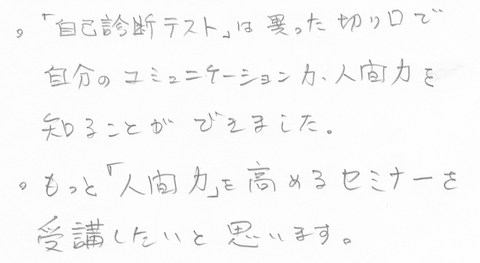 。「自己診断テスト」は異った切り口で
自分のコミュニケーション力、人間力を
知ることができました。
。もっと「人間力」を高めるセミナーを
受講したいと思います。